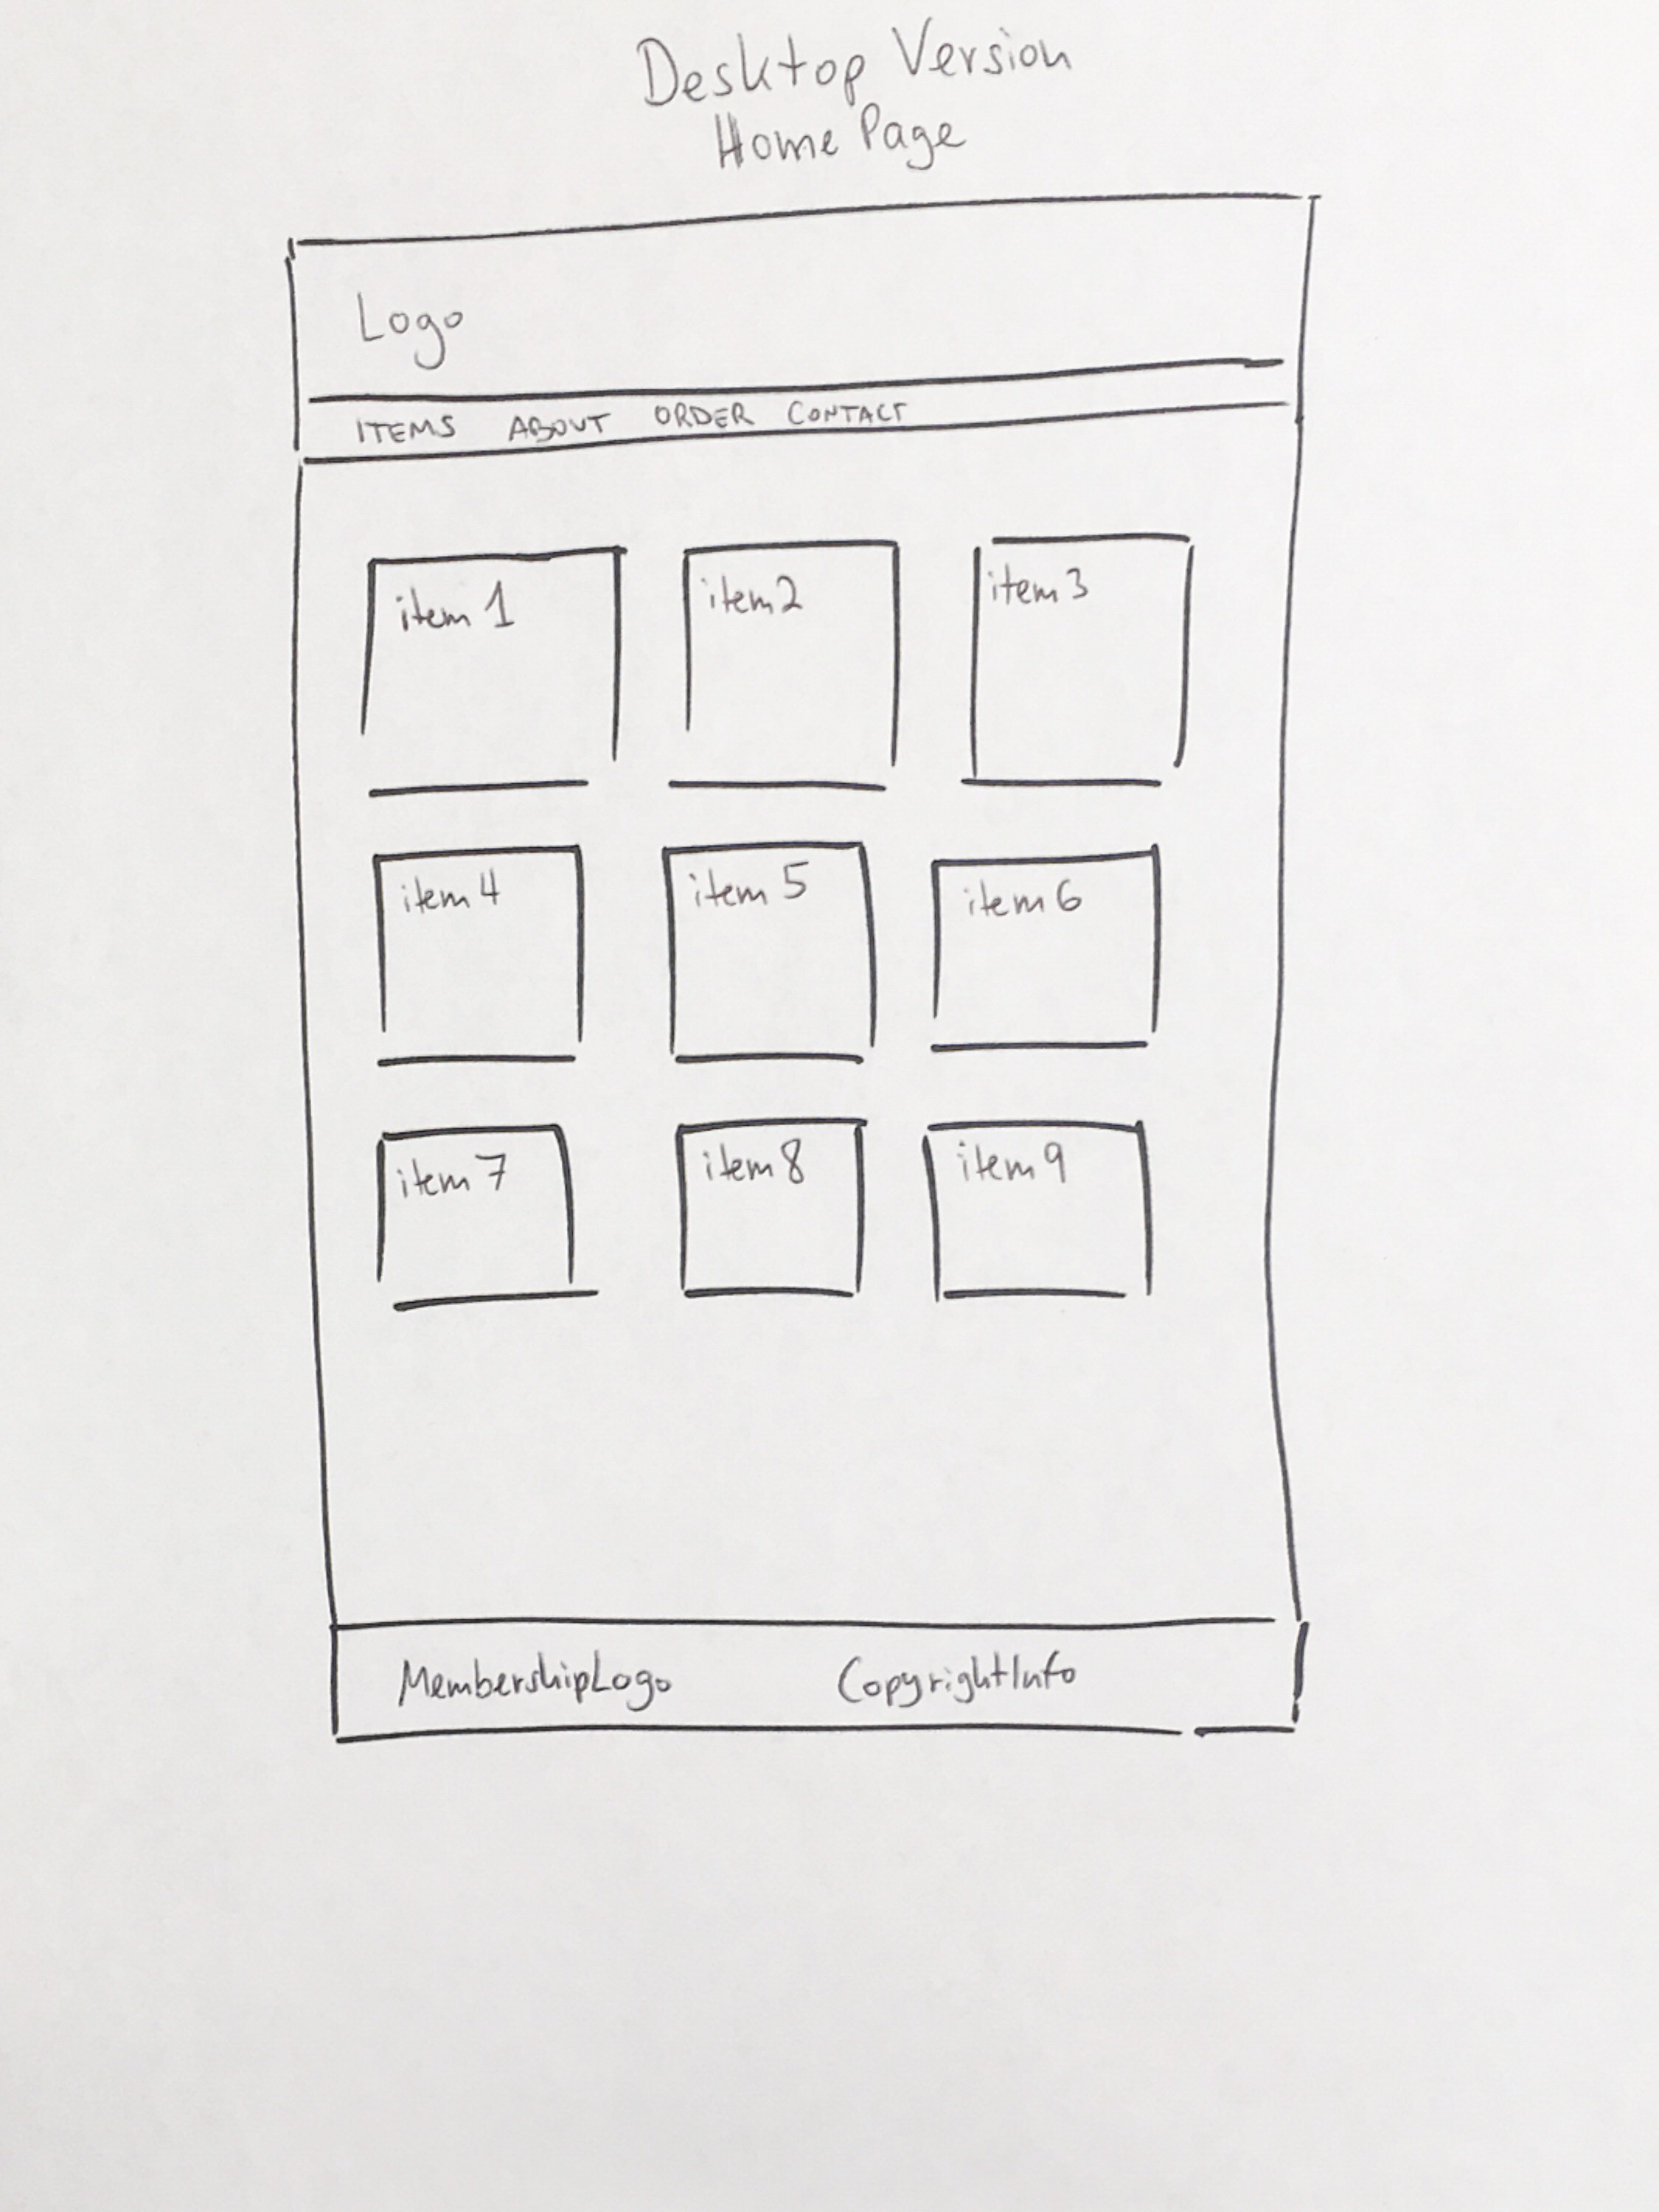 Desktop Version
Home Page
Logo
ITEMS ABOUT ORDER CONTACT
item 1 item 2 item 3
item 4 item 5 item 6
item 7 item 8 item 9
MembershipLogo CopyrightInfo